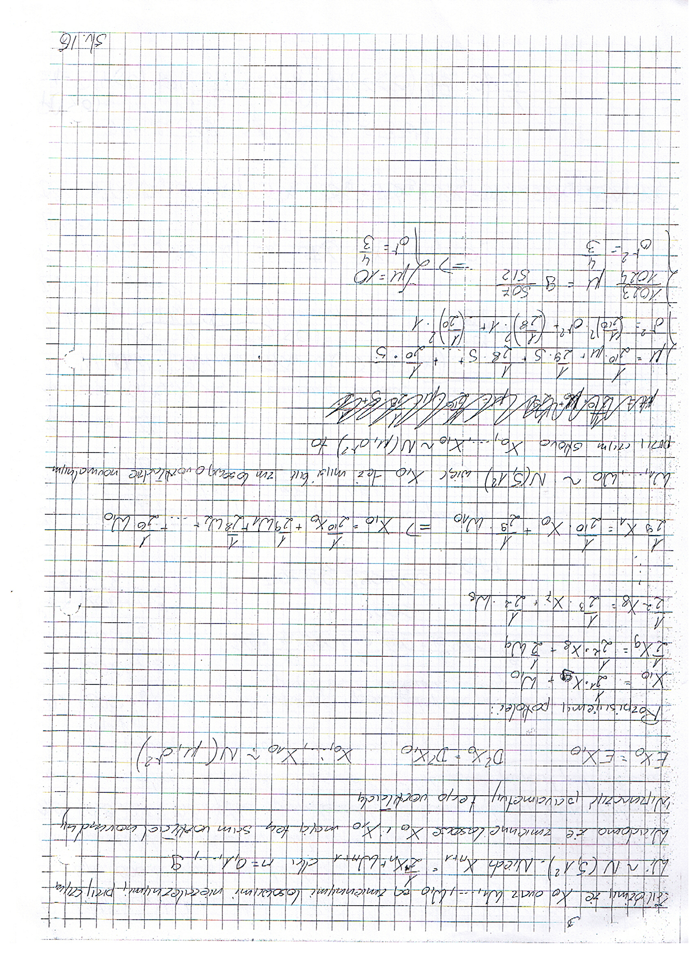 3
Załóżmy, że X₀ oraz W₁, ..., W₁₀ są zmiennymi losowymi niezależnymi, przy czym
Wᵢ ~ N(5,1²). Niech Xₙ₊₁ = 1/2 Xₙ + Wₙ₊₁ dla n=0,1,..., 9
Wiadomo że zmienne losowe X₀ i X₁₀ mają ten sam rozkład normalny
Wyznaczyć parametry tego rozkładu
EX₀ = EX₁₀ D²X₀ = D²X₁₀ X₀, ..., X₁₀ ~ N(μ, σ²)
Rozpisujemy po kolei:
X₁₀ = 1/2¹ · X₉ + W₁₀
1/2 X₉ = 1/2² · X₈ + 1/2 W₉
1/2² X₈ = 1/2³ · X₇ + 1/2² · W₈
....
1/2⁹ X₁ = 1/2¹⁰ · X₀ + 1/2⁹ · W₁₀ => X₁₀ = 1/2¹⁰ X₀ + 1/2⁹ W₁ + 1/2⁸ W₂ + ...... + 1/2⁰ W₁₀
W₁, ..., W₁₀ ~ N(5,1²) więc X₀ też musi być zm losową o rozkładzie normalnym
przy czym skoro X₀, ..., X₁₀ ~ N(μ, σ²) to
{ μ = 1/2¹⁰ μ + 1/2⁹ · 5 + 1/2⁸ · 5 + ... + 1/2⁰ · 5
σ² = (1/2¹⁰)² σ² + (1/2⁹)² · 1 + ... (1/2⁰)² · 1
{ 1023/1024 μ = 9 507/512 => { μ = 10
σ² = 4/3 σ² = 4/3
Str. 16